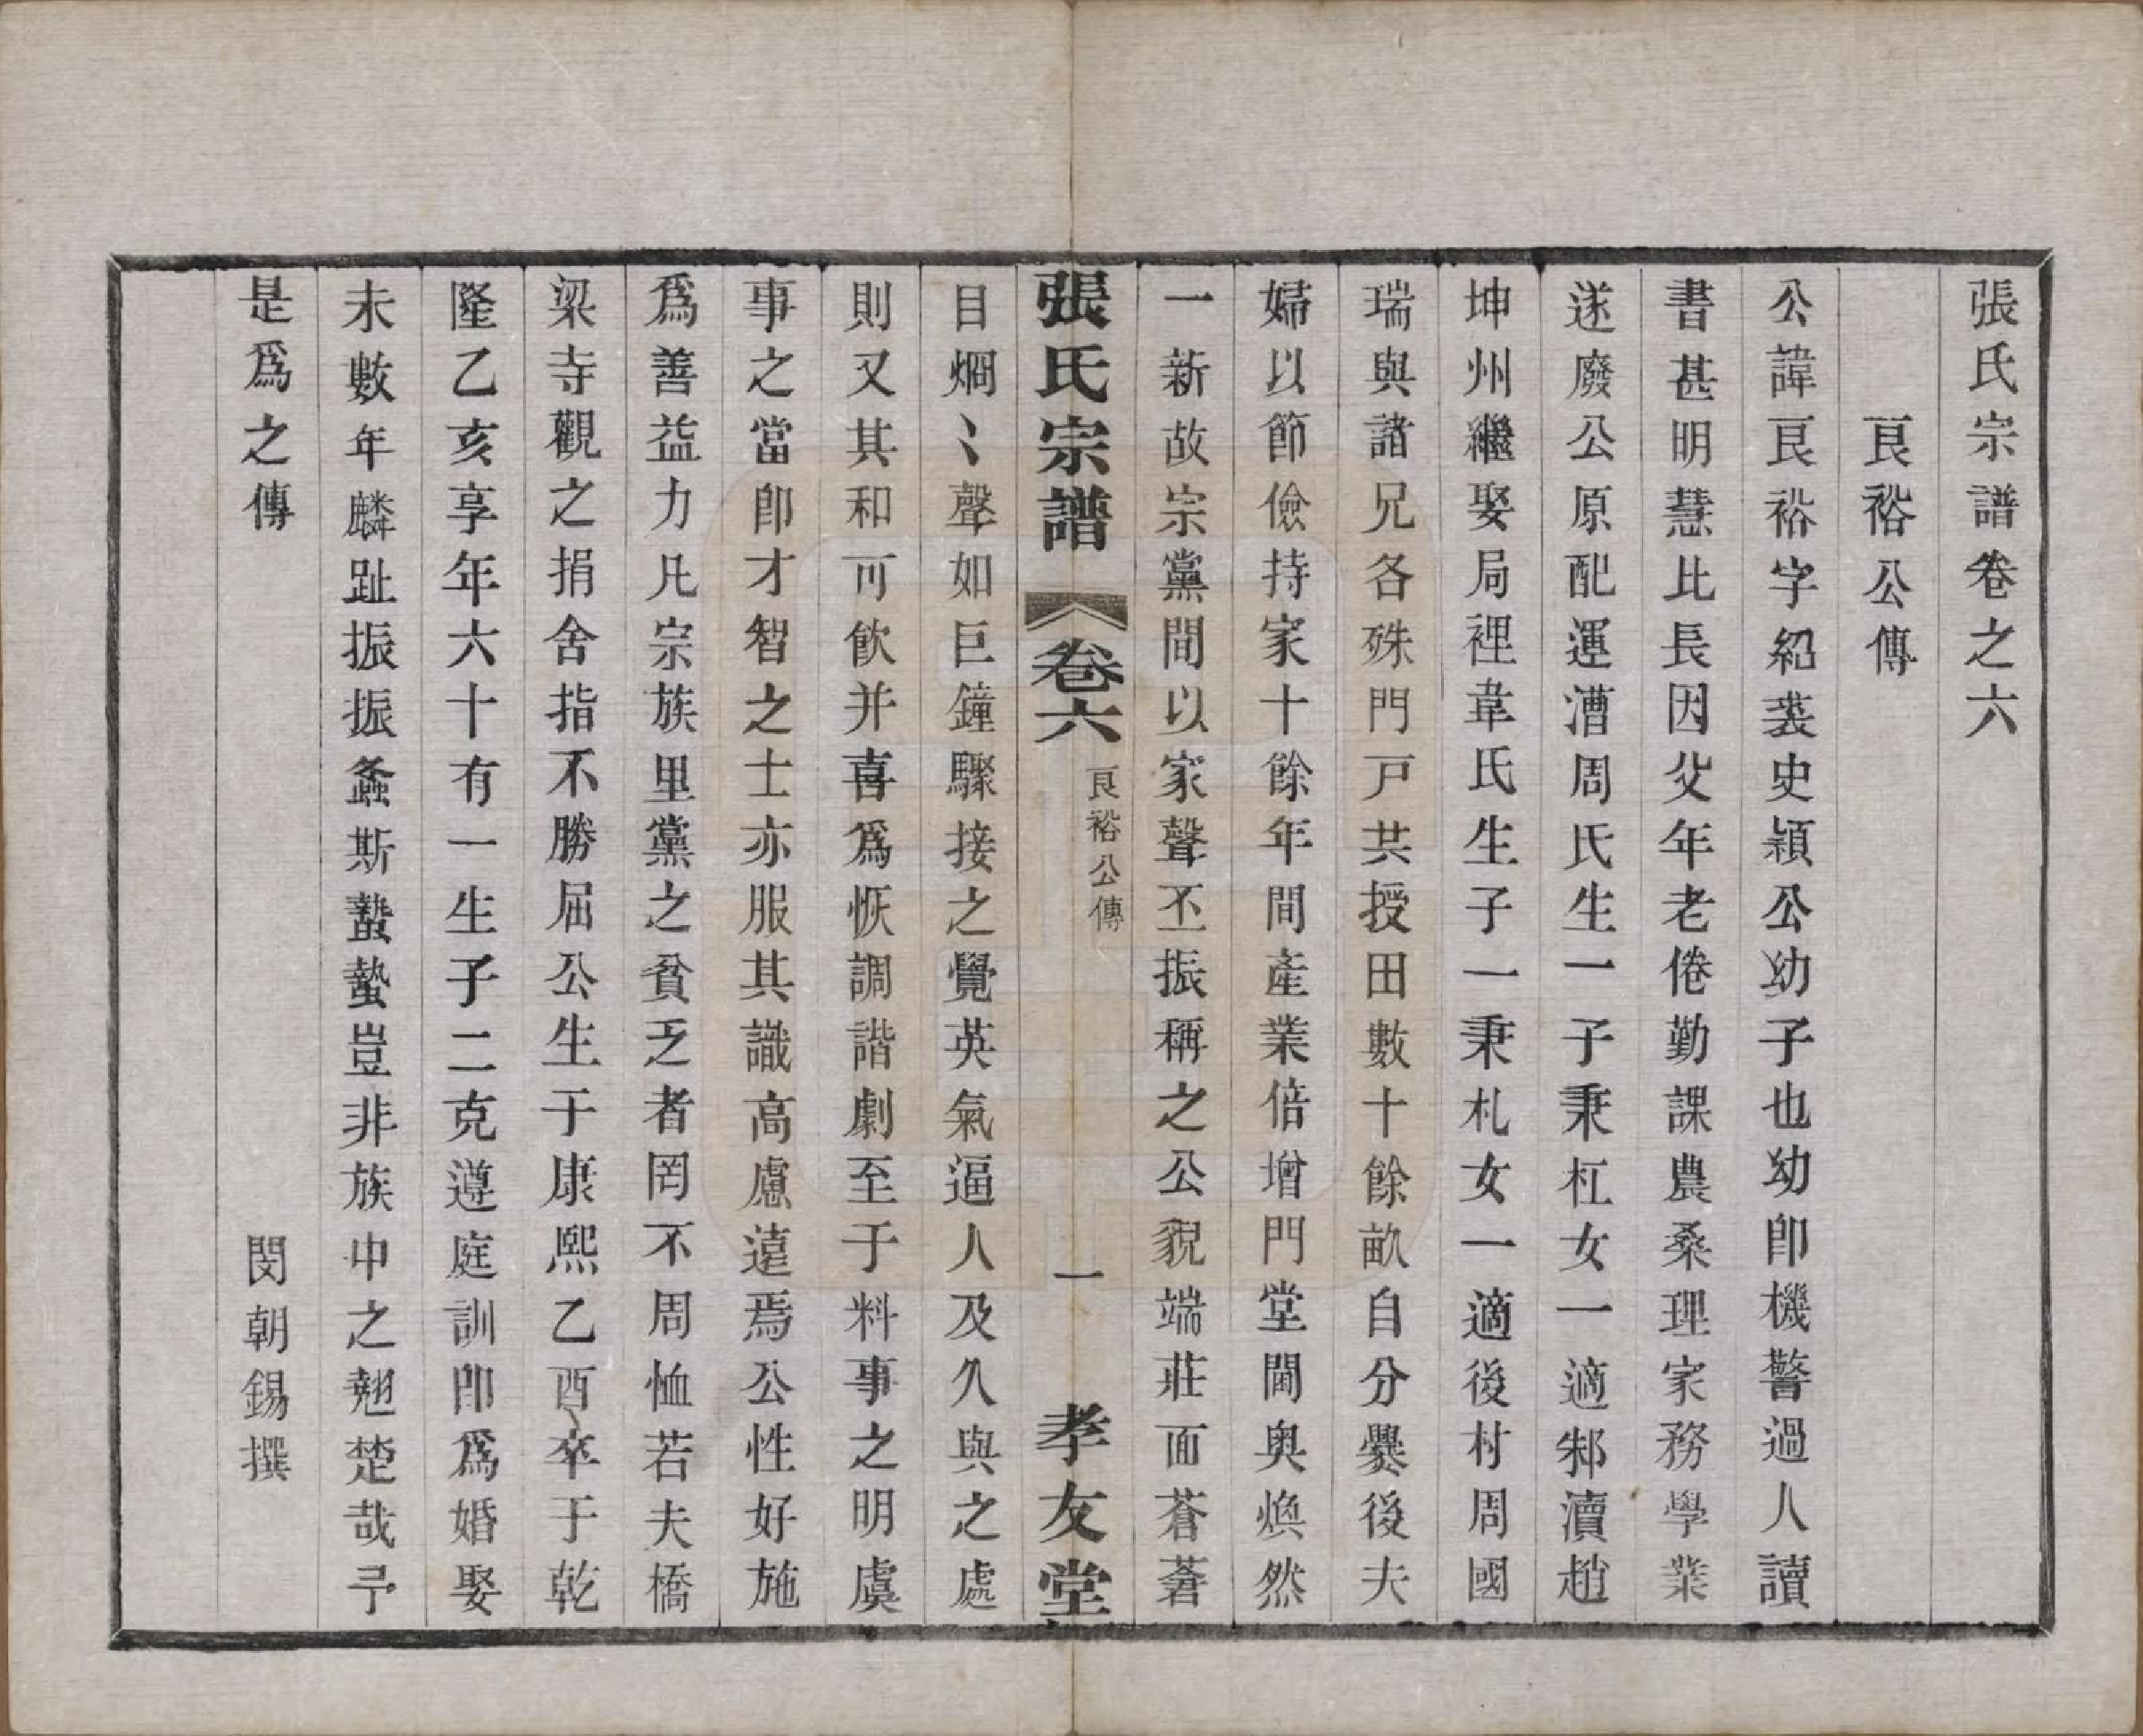 張氏宗譜卷之六
良裕公傳
公諱良裕字紹裘史穎公幼子也幼卽機警過人讀
書甚明慧比長因父年老倦勤課農桑理家務學業
遂廢公原配運漕周氏生一子秉杠女一適邾瀆趙
坤州繼娶局裡韋氏生子一秉札女一適後村周國
瑞與諸兄各殊門戸共授田數十餘畝自分爨後夫
婦以節儉持家十餘年間產業倍增門堂閫奥煥然
一新故宗黨間以家聲丕振稱之公貌端莊面蒼蒼
張氏宗譜 卷六 良裕公傳 一 孝友堂
目烱〻聲如巨鐘驟接之覺英氣逼人及久與之處
則又其和可飮并喜爲恢調諧劇至于料事之明虞
事之當卽才智之士亦服其識高慮遠焉公性好施
爲善益力凡宗族里黨之貧乏者罔不周恤若夫橋
梁寺觀之捐舍指不勝屈公生于康熙乙酉卒于乾
隆乙亥享年六十有一生子二克遵庭訓卽爲婚娶
未數年麟趾振振螽斯蟄蟄豈非族中之翹楚哉予
是爲之傳 閔朝錫撰